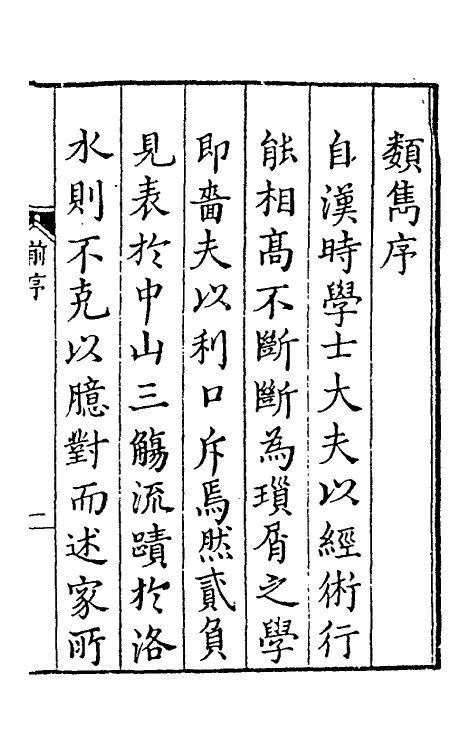 類雋序
自漢時學士大夫以經術行
能相高不斷斷為瑣屑之學
即嗇夫以利口斥焉然貳負
見表於中山三觴流蹟於洛
水則不克以臆對而述家所
前序
一